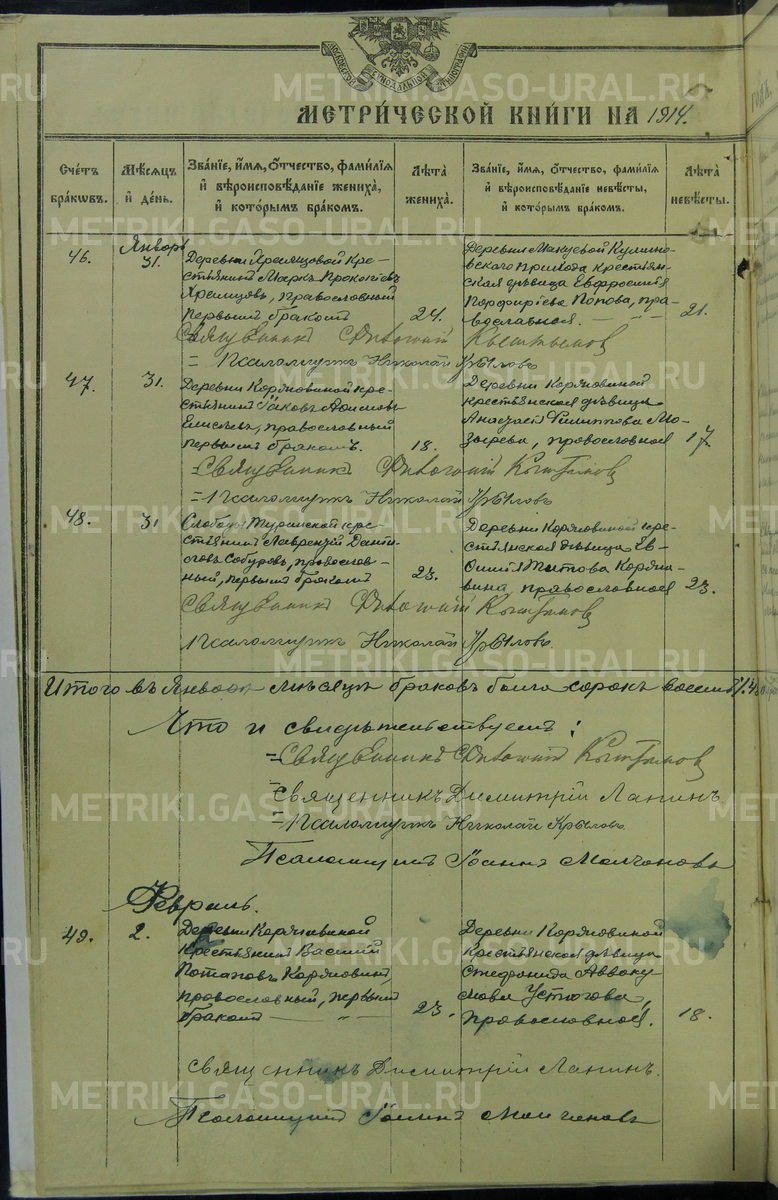 МОСКОВСКОЙ СѴНОДАЛЬНОЙ ТѴПОГРАФІИ
МЕТРИ́ЧЕСКОЙ КНИ́ГИ НА 1914.
Сче́тъ бра́кѡвъ.
Мѣ́сѧцъ и҆ де́нь.
Зва́нїе, и҆́мѧ, ѻ҆́тчество, фами́лїѧ и҆ вѣроисповѣ́данїе жениха̀, и҆ кото́рымъ бра́комъ.
Лѣ́та жениха̀.
Зва́нїе, и҆́мѧ, ѻ҆́тчество, фами́лїѧ и҆ вѣроисповѣ́данїе невѣ́сты, и҆ кото́рымъ бра́комъ.
Лѣ́та невѣ́сты.
Январь
46.
31.
Деревни Храмцовой кре-
стьянинъ Маркъ Прокопіевъ
Храмцовъ, православный
первымъ бракомъ
24.
Деревни Макуевой
прихода крестьян-
ская дѣвица Евфросинія
Порфиріева Попова, пра-
вославная.
21.
Священникъ
Псаломщикъ Николай Крыловъ
47.
31.
Деревни Коряковиной кре-
стьянинъ Іаковъ
православный
первымъ бракомъ.
18.
Деревни Коряковиной
крестьянская дѣвица
Филиппова Мо-
зырева, православная
17.
Священникъ
Псаломщикъ Николай Крыловъ
48.
31
Слободы Туринской кре-
стьянинъ Лаврентій Дани-
ловъ Сабуровъ, православ-
ный, первымъ бракомъ
23.
Деревни Коряковиной кре-
стьянская дѣвица Ев-
Титова Коряко-
вина, православная
23.
Священникъ
Псаломщикъ Николай Крыловъ.
Итого въ Январѣ мѣсяцѣ браковъ было сорокъ восемь /48
Что и свидѣтельствуемъ:
Священникъ
Священникъ Димитрій Лапинъ
Псаломщикъ Николай Крыловъ
Псаломщикъ Іоаннъ Молчановъ
Февраль.
49.
2.
Деревни Коряковиной
крестьянинъ Василій
Потаповъ Коряковинъ,
православный, первымъ
бракомъ
23.
Деревни Коряковиной
крестьянская дѣвица
Стефанида Авваку-
мова Устюгова,
православная.
18.
Священникъ Димитрій Лапинъ.
Псаломщикъ Іоаннъ Молчановъ
METRIKI.GASO-URAL.RU